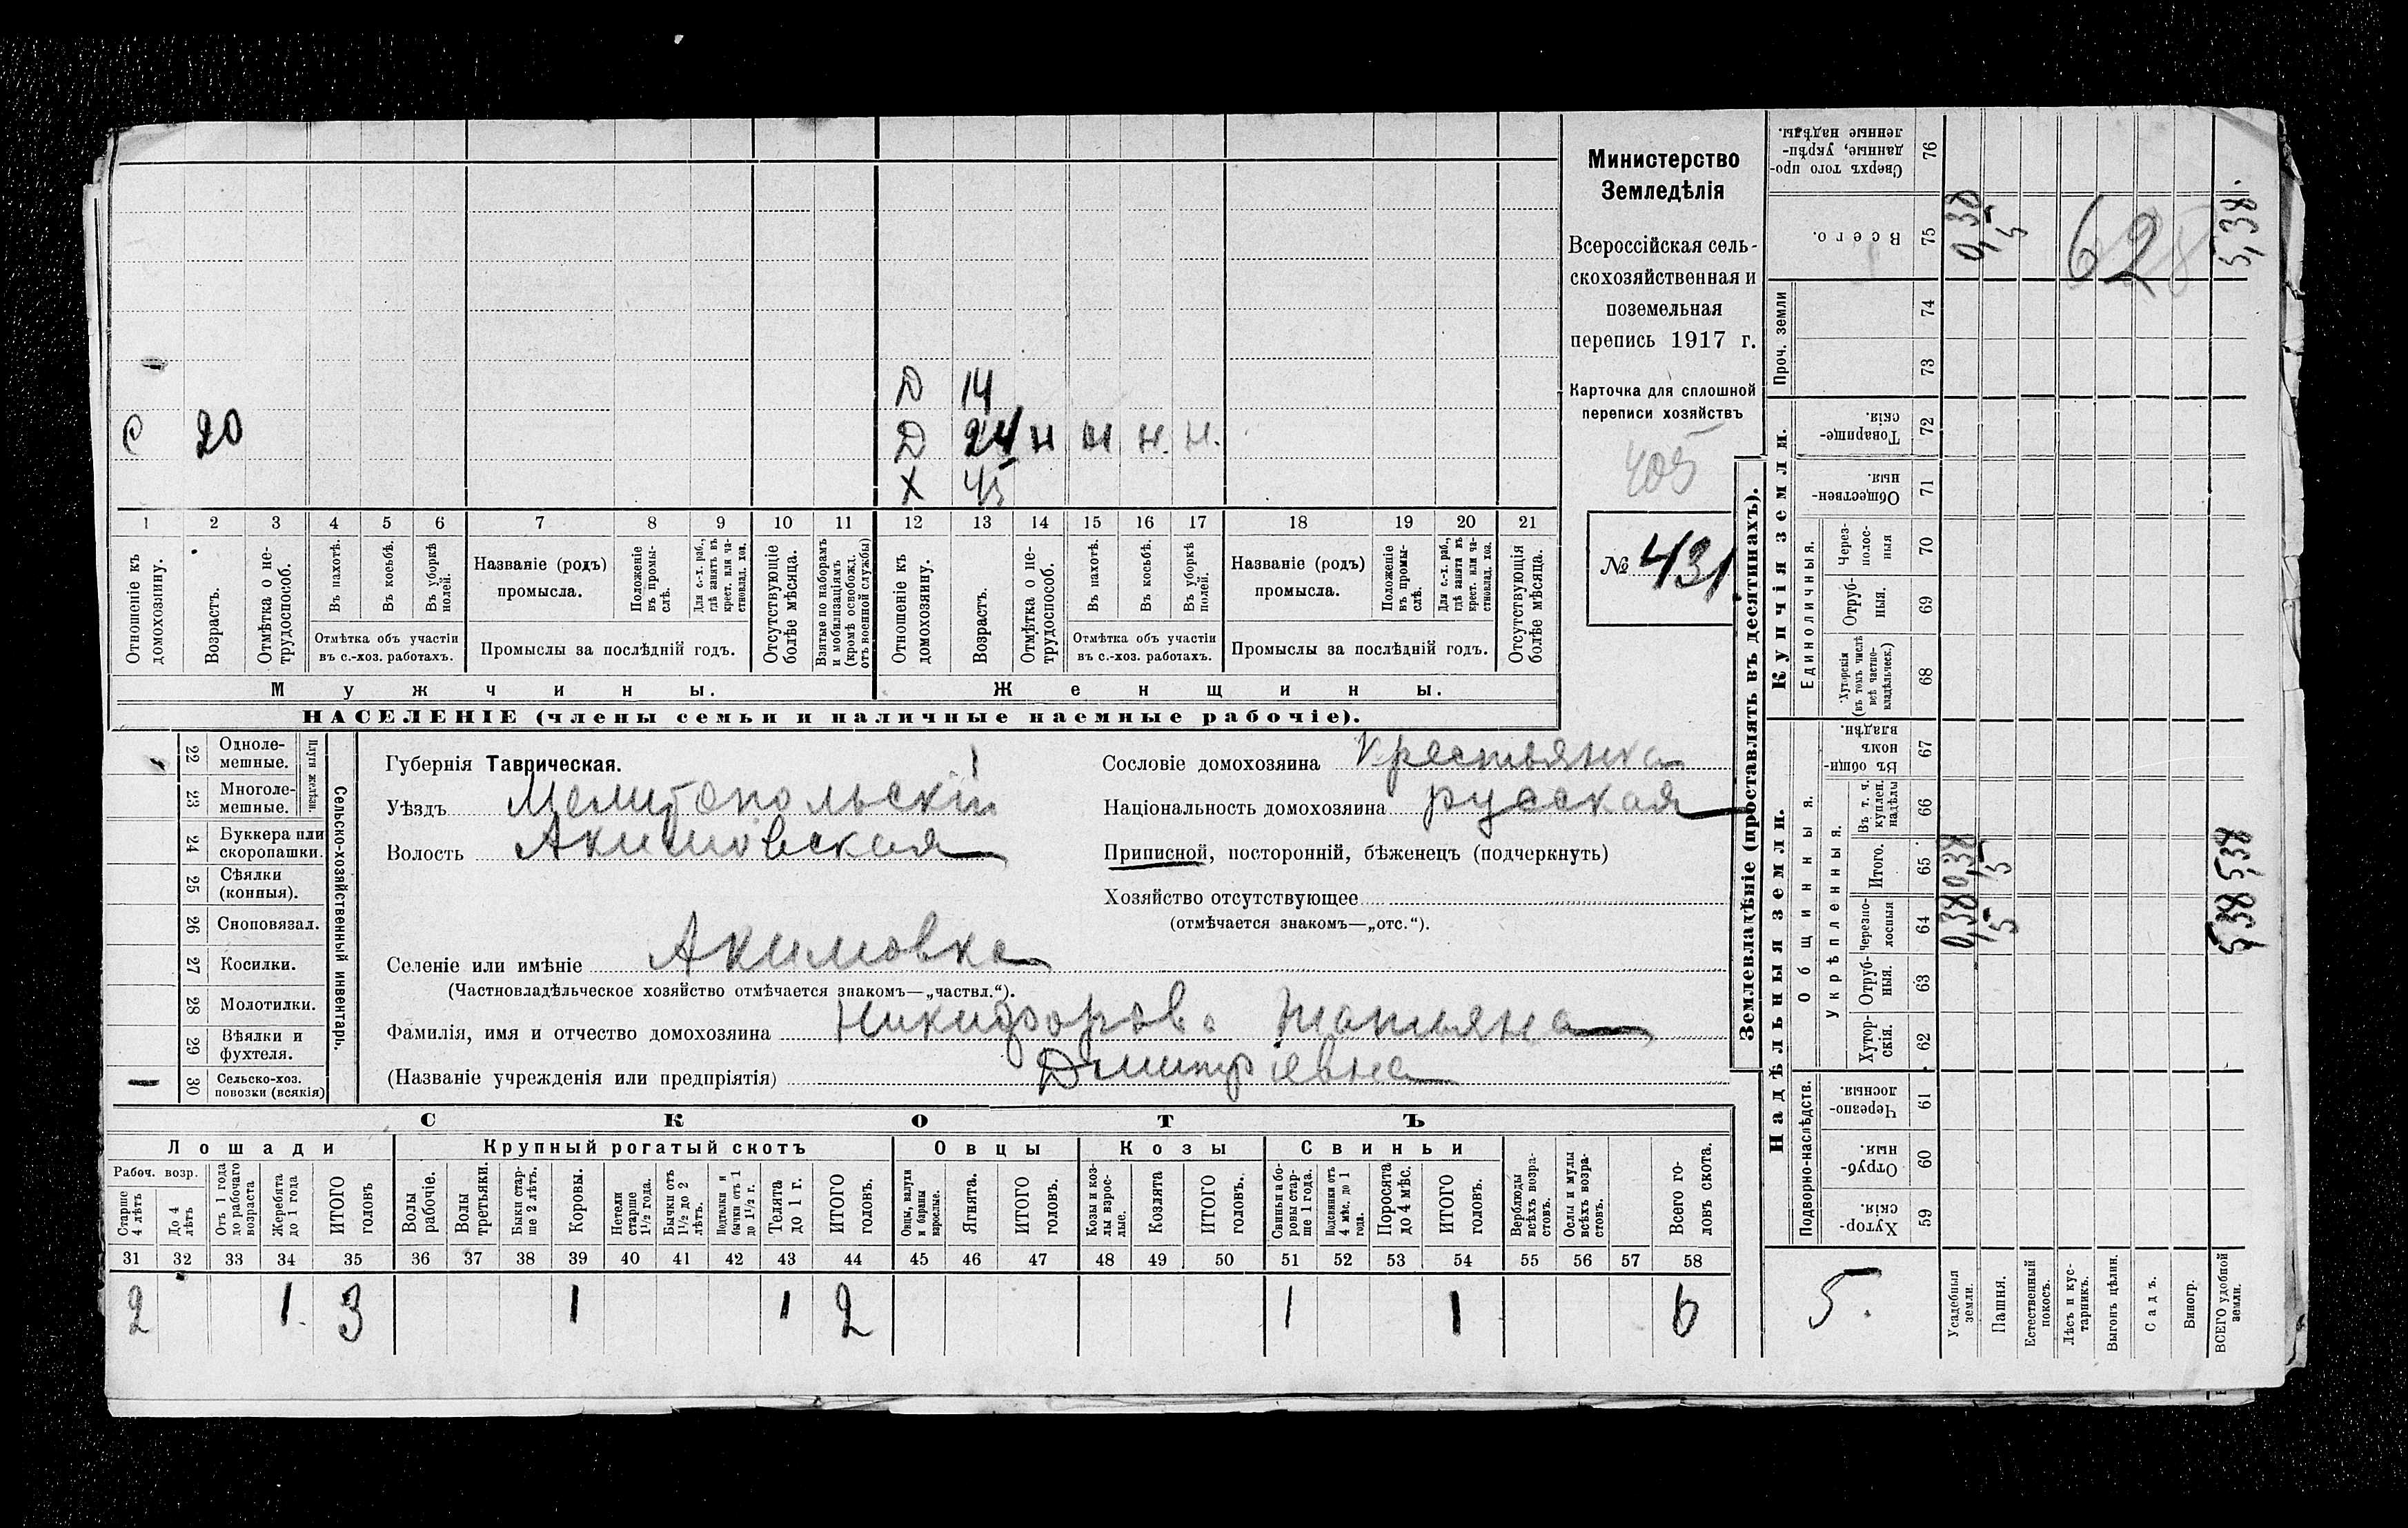 Министерство
Земледѣлія
Всероссійская сель-
скохозяйственная и
поземельная
перепись 1917 г.
Карточка для сплошной
переписи хозяйствъ
405
№ 431
Д 14
С 20 Д 24 н н н. н.
Х 45
1 2 3 4 5 6 7 8 9 10 11 12 13 14 15 16 17 18 19 20 21
Отношеніе къ домохозяину.
Возрастъ.
Отмѣтка о не-трудоспособ.
Въ пахотѣ.
Въ косьбѣ.
Въ уборкѣ полей.
Отмѣтка объ участіи
въ с.-хоз. работахъ.
Названіе (родъ)
промысла.
Положеніе въ промы-слѣ.
Для с.-х. раб., гдѣ занятъ въ крест. или ча-стновлад. хоз.
Промыслы за послѣдній годъ.
Отсутствующіе болѣе мѣсяца.
Взятые по наборамъ и мобилизаціямъ (кромѣ освобожд. отъ военной службы)
Отношеніе къ домохозяину.
Возрастъ.
Отмѣтка о не-трудоспособ.
Въ пахотѣ.
Въ косьбѣ.
Въ уборкѣ полей.
Отмѣтка объ участіи
въ с.-хоз. работахъ.
Названіе (родъ)
промысла.
Положеніе въ промы-слѣ.
Для с.-х. раб., гдѣ занята въ крест. или ча-стновлад. хоз.
Промыслы за послѣдній годъ.
Отсутствующія болѣе мѣсяца.
Мужчины. Женщины.
НАСЕЛЕНІЕ (члены семьи и наличные наемные рабочіе).
Сельско-хозяйственный инвентарь.
Плуги желѣзн.
22 Одноле-мешные.
23 Многоле-мешные.
24 Буккера или скоропашки.
25 Сѣялки (конныя).
26 Сноповязал.
27 Косилки.
28 Молотилки.
29 Вѣялки и фухтеля.
30 Сельско-хоз. повозки (всякія)
Губернія Таврическая.
Уѣздъ Мелитопольскій
Волость Акимовская
Селеніе или имѣніе Акимовка
(Частновладѣльческое хозяйство отмѣчается знакомъ—„частвл.“).
Фамилія, имя и отчество домохозяина Никифорова Татьяна
(Названіе учрежденія или предпріятія) Дмитріевна
Сословіе домохозяина Крестьянка
Національность домохозяина русская
Приписной, посторонній, бѣженецъ (подчеркнуть)
Хозяйство отсутствующее
(отмѣчается знакомъ—„отс.“).
СКОТЪ
Лошади Крупный рогатый скотъ Овцы Козы Свиньи
Рабоч. возр.
Старше 4 лѣтъ
До 4 лѣтъ
Отъ 1 года до рабочаго возраста
Жеребята до 1 года
ИТОГО головъ
Волы рабочіе.
Волы третьяки.
Быки стар-ше 2 лѣтъ.
Коровы.
Нетели старше 1½ года.
Бычки отъ 1½ до 2 лѣтъ.
Подтелки и бычки отъ 1 до 1½ г.
Телята до 1 г.
ИТОГО головъ.
Овцы, валухи и бараны взрослые.
Ягнята.
ИТОГО головъ.
Козы и коз-лы взрос-лые.
Козлята
ИТОГО головъ.
Свиньи и бо-ровы стар-ше 1 года.
Подсвинки отъ 4 мѣс. до 1 года.
Поросята до 4 мѣс.
ИТОГО головъ.
Верблюды всѣхъ возра-стовъ.
Ослы и мулы всѣхъ возра-стовъ.
Всего го-ловъ скота.
31 32 33 34 35 36 37 38 39 40 41 42 43 44 45 46 47 48 49 50 51 52 53 54 55 56 57 58
2 1 3 1 1 2 1 1 6
Землевладѣніе (проставлять въ десятинахъ).
Надѣльныя земли. Купчія земли. Проч. земли
Подворно-наслѣдств.
Общинныя.
Укрѣпленныя.
Единоличныя.
59 Хутор-скія.
60 Отруб-ныя.
61 Черезпо-лосныя.
62 Хутор-скія.
63 Отруб-ныя.
64 Черезпо-лосныя
65 Итого.
66 Въ т. ч. куплен. надѣлы
67 Въ общин-номъ владѣн.
68 Хуторскія (въ томъ числѣ всѣ частно-владѣльческ.)
69 Отруб-ныя.
70 Через-полос-ныя
71 Обществен-ныя.
72 Товарище-скія.
73
74
75 Всего.
76 Сверхъ того про-данные, укрѣп-ленные надѣлы.
5.
Усадебныя земли.
Пашня.
Естественный покосъ.
Лѣсъ и кус-тарникъ.
Выгонъ цѣлин.
Садъ.
Виногр.
ВСЕГО удобной земли.
0,38 5 5,38
0,38 5 5,38
0,38 5 5,38.
62